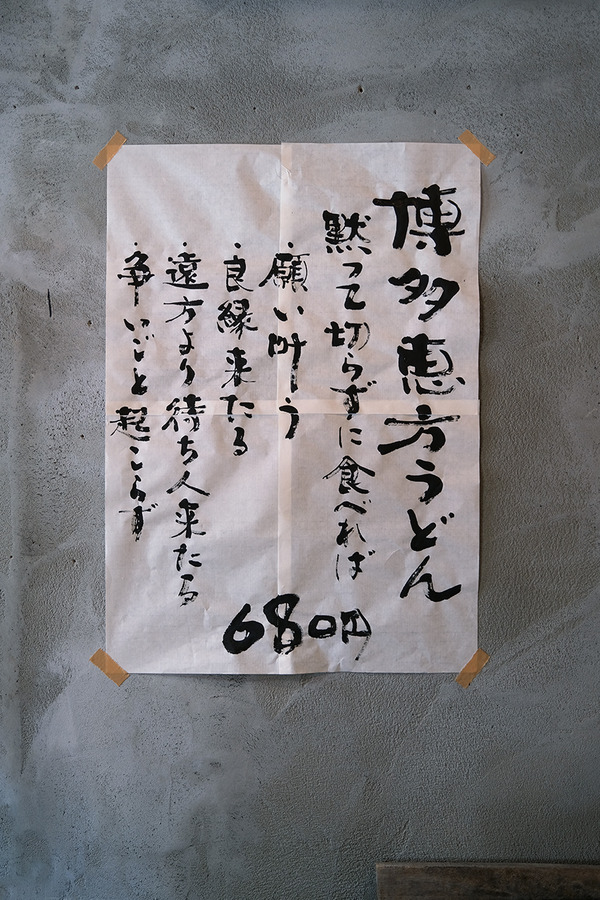 博多恵方うどん
黙って切らずに食べれば
・願い叶う
・良縁来たる
・遠方より待ち人来たる
・争いごと起こらず
680円